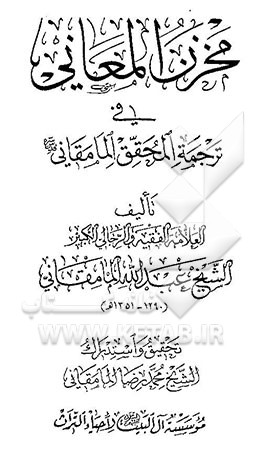 مخزن المعاني
في
ترجمة المحقق المامقاني
تأليف
العلامة الفقيه والرجالي الكبير
الشيخ عبد الله المامقاني
(١٢٩٠ - ١٣٥١هـ)
تحقيق واستدراك
الشيخ محمد رضا المامقاني
مؤسسة آل البيت لإحياء التراث
WWW.KETAB.IR